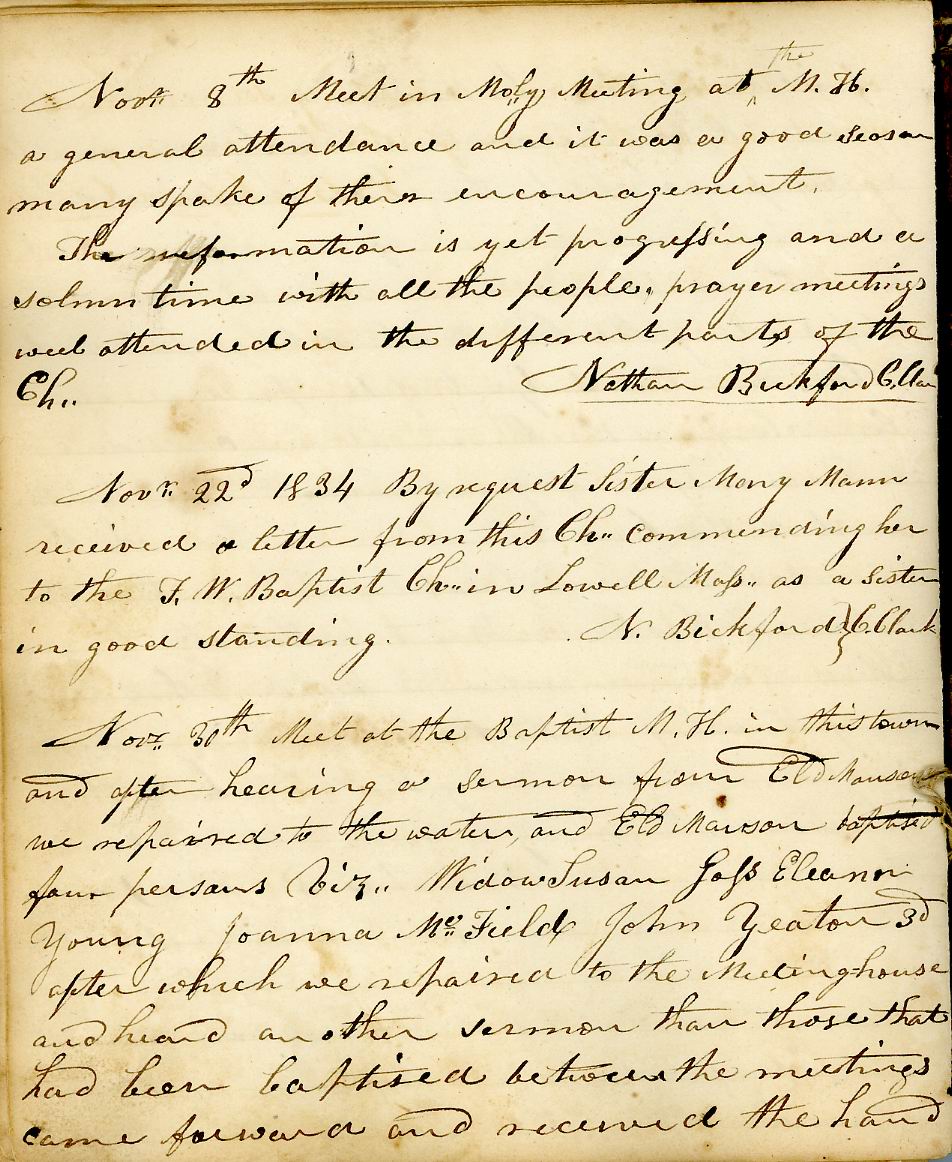 Novr. 8th Meet in Moly Meeting at the M. H.
a general attendance and it was a good season
many spake of their encouragement.
The reformation is yet progressing and a
solmn time with all the people, prayer meetings
well attended in the different parts of the
Ch,, Nathan Bickford C. Clar
Novr. 22d 1834 By request Sister Mary Mann
received a letter from this Ch,, commending her
to the F. W. Baptist Ch,, in Lowell Mass,, as a Sister
in good standing. N. Bickford } C. Clark
Novr. 30th Meet at the Baptist M. H. in this town
and after hearing a sermon from Eld Manson
we repaired to the water, and Eld Manson baptised
four persons Viz,, Widow Susan Goss Eleanor
Young Joanna Mc Field John Yeaton 3d
after which we repaired to the Meetinghouse
and heard another sermon than those that
had been baptised between the meetings
came forward and received the hand